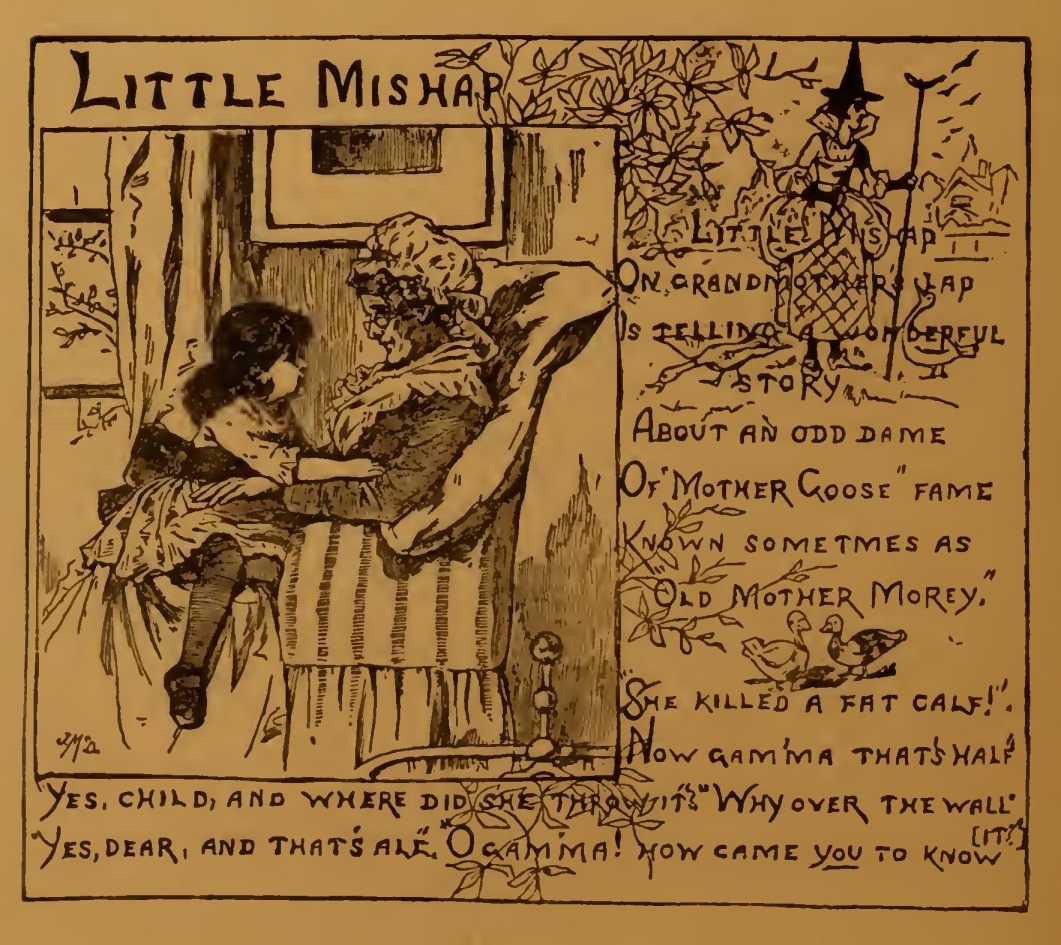 LITTLE MISHAP
LITTLE MISHAP
ON GRANDMOTHERS LAP
IS TELLING A WONDERFUL
STORY
ABOUT AN ODD DAME
OF "MOTHER GOOSE" FAME
KNOWN SOMETMES AS
"OLD MOTHER MOREY."
"SHE KILLED A FAT CALF!".
NOW GAM'MA THAT'S HALF"
"YES, CHILD, AND WHERE DID SHE THROW IT?" "WHY OVER THE WALL"
"YES, DEAR, AND THAT'S ALL". "O GAM'MA! HOW CAME YOU TO KNOW
[IT?"]
J.McD.